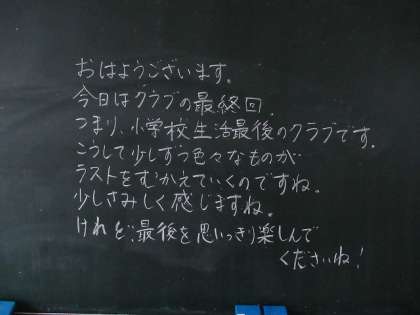 おはようございます。
今日はクラブの最終回.
つまり、小学校生活最後のクラブです.
こうして少しずつ色々なものが
ラストをむかえていくのですね。
少しさみしく感じますね。
けれど、最後を思いっきり楽しんで
くださいね!